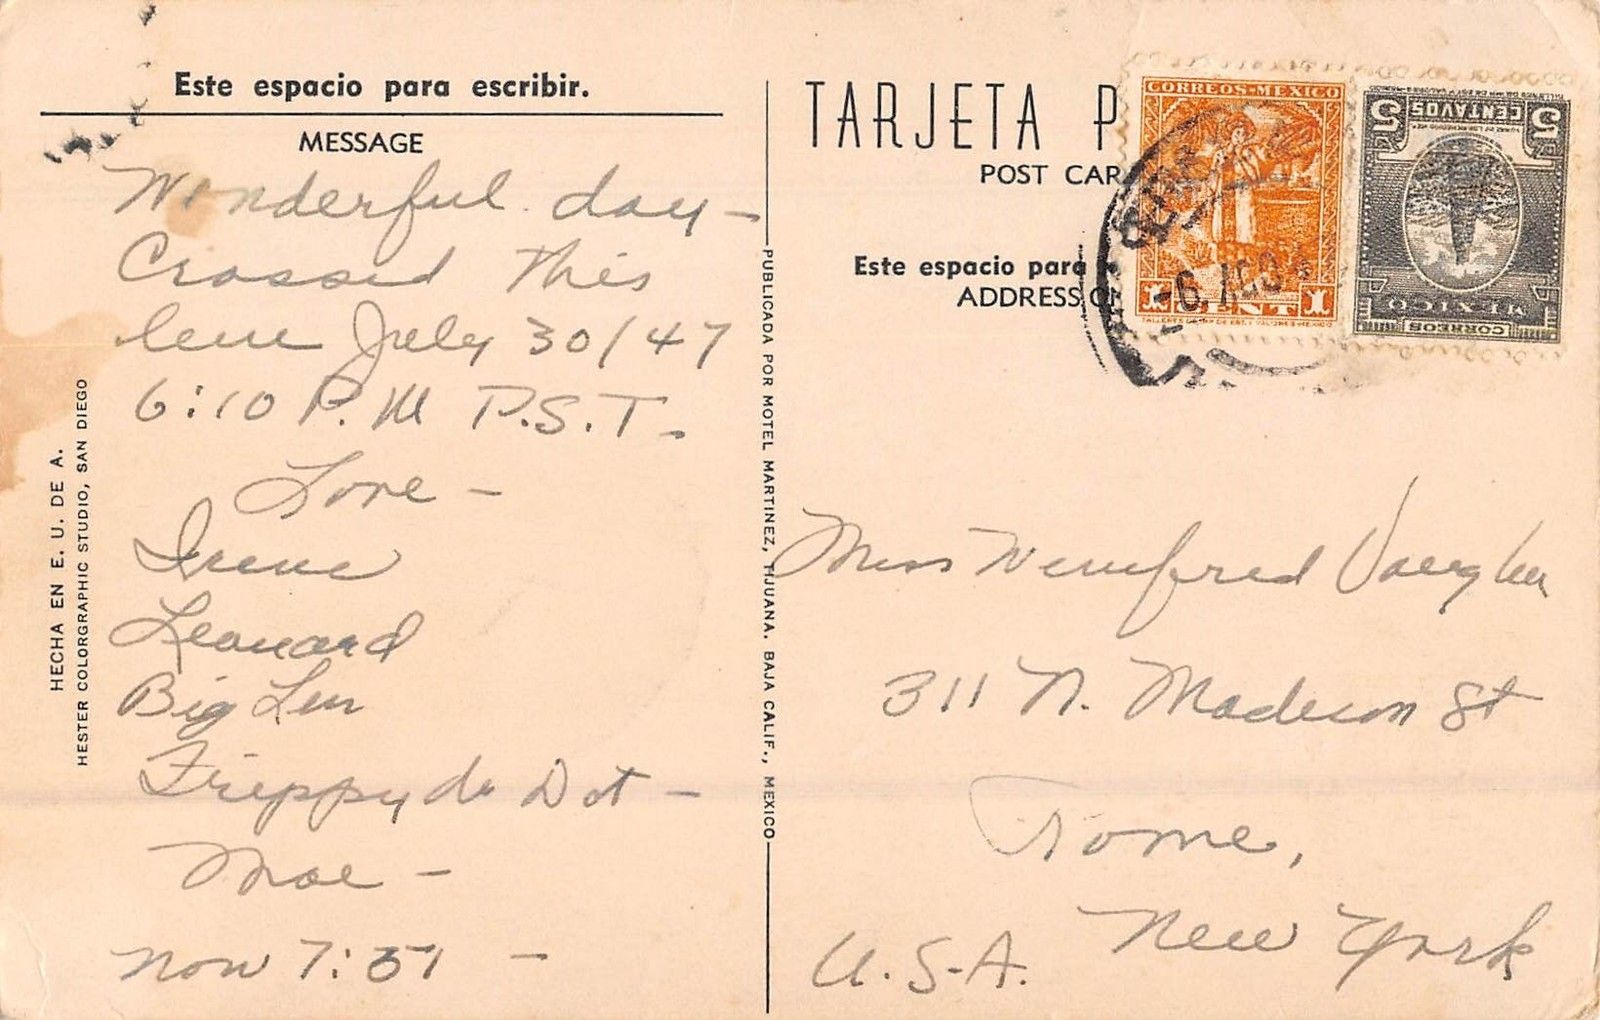 Este espacio para escribir.
MESSAGE
Wonderful day –
Crossed this
line July 30/47
6:10 P.M P.S.T –
Love –
Irene
Leonard
Big Len
Dot –
Mae –
now 7:51 –
HECHA EN E. U. DE A.
HESTER COLORGRAPHIC STUDIO, SAN DIEGO
PUBLICADA POR MOTEL MARTINEZ, TIJUANA. BAJA CALIF., MEXICO
TARJETA P
POST CAR
Este espacio para
ADDRESS O
CORREOS-MEXICO
1 CENT 1
5 5
CENTAVOS
MEXICO
CORREOS
Miss Winifred Vaughn
311 N. Madison St
Rome,
New York
U.S.A.